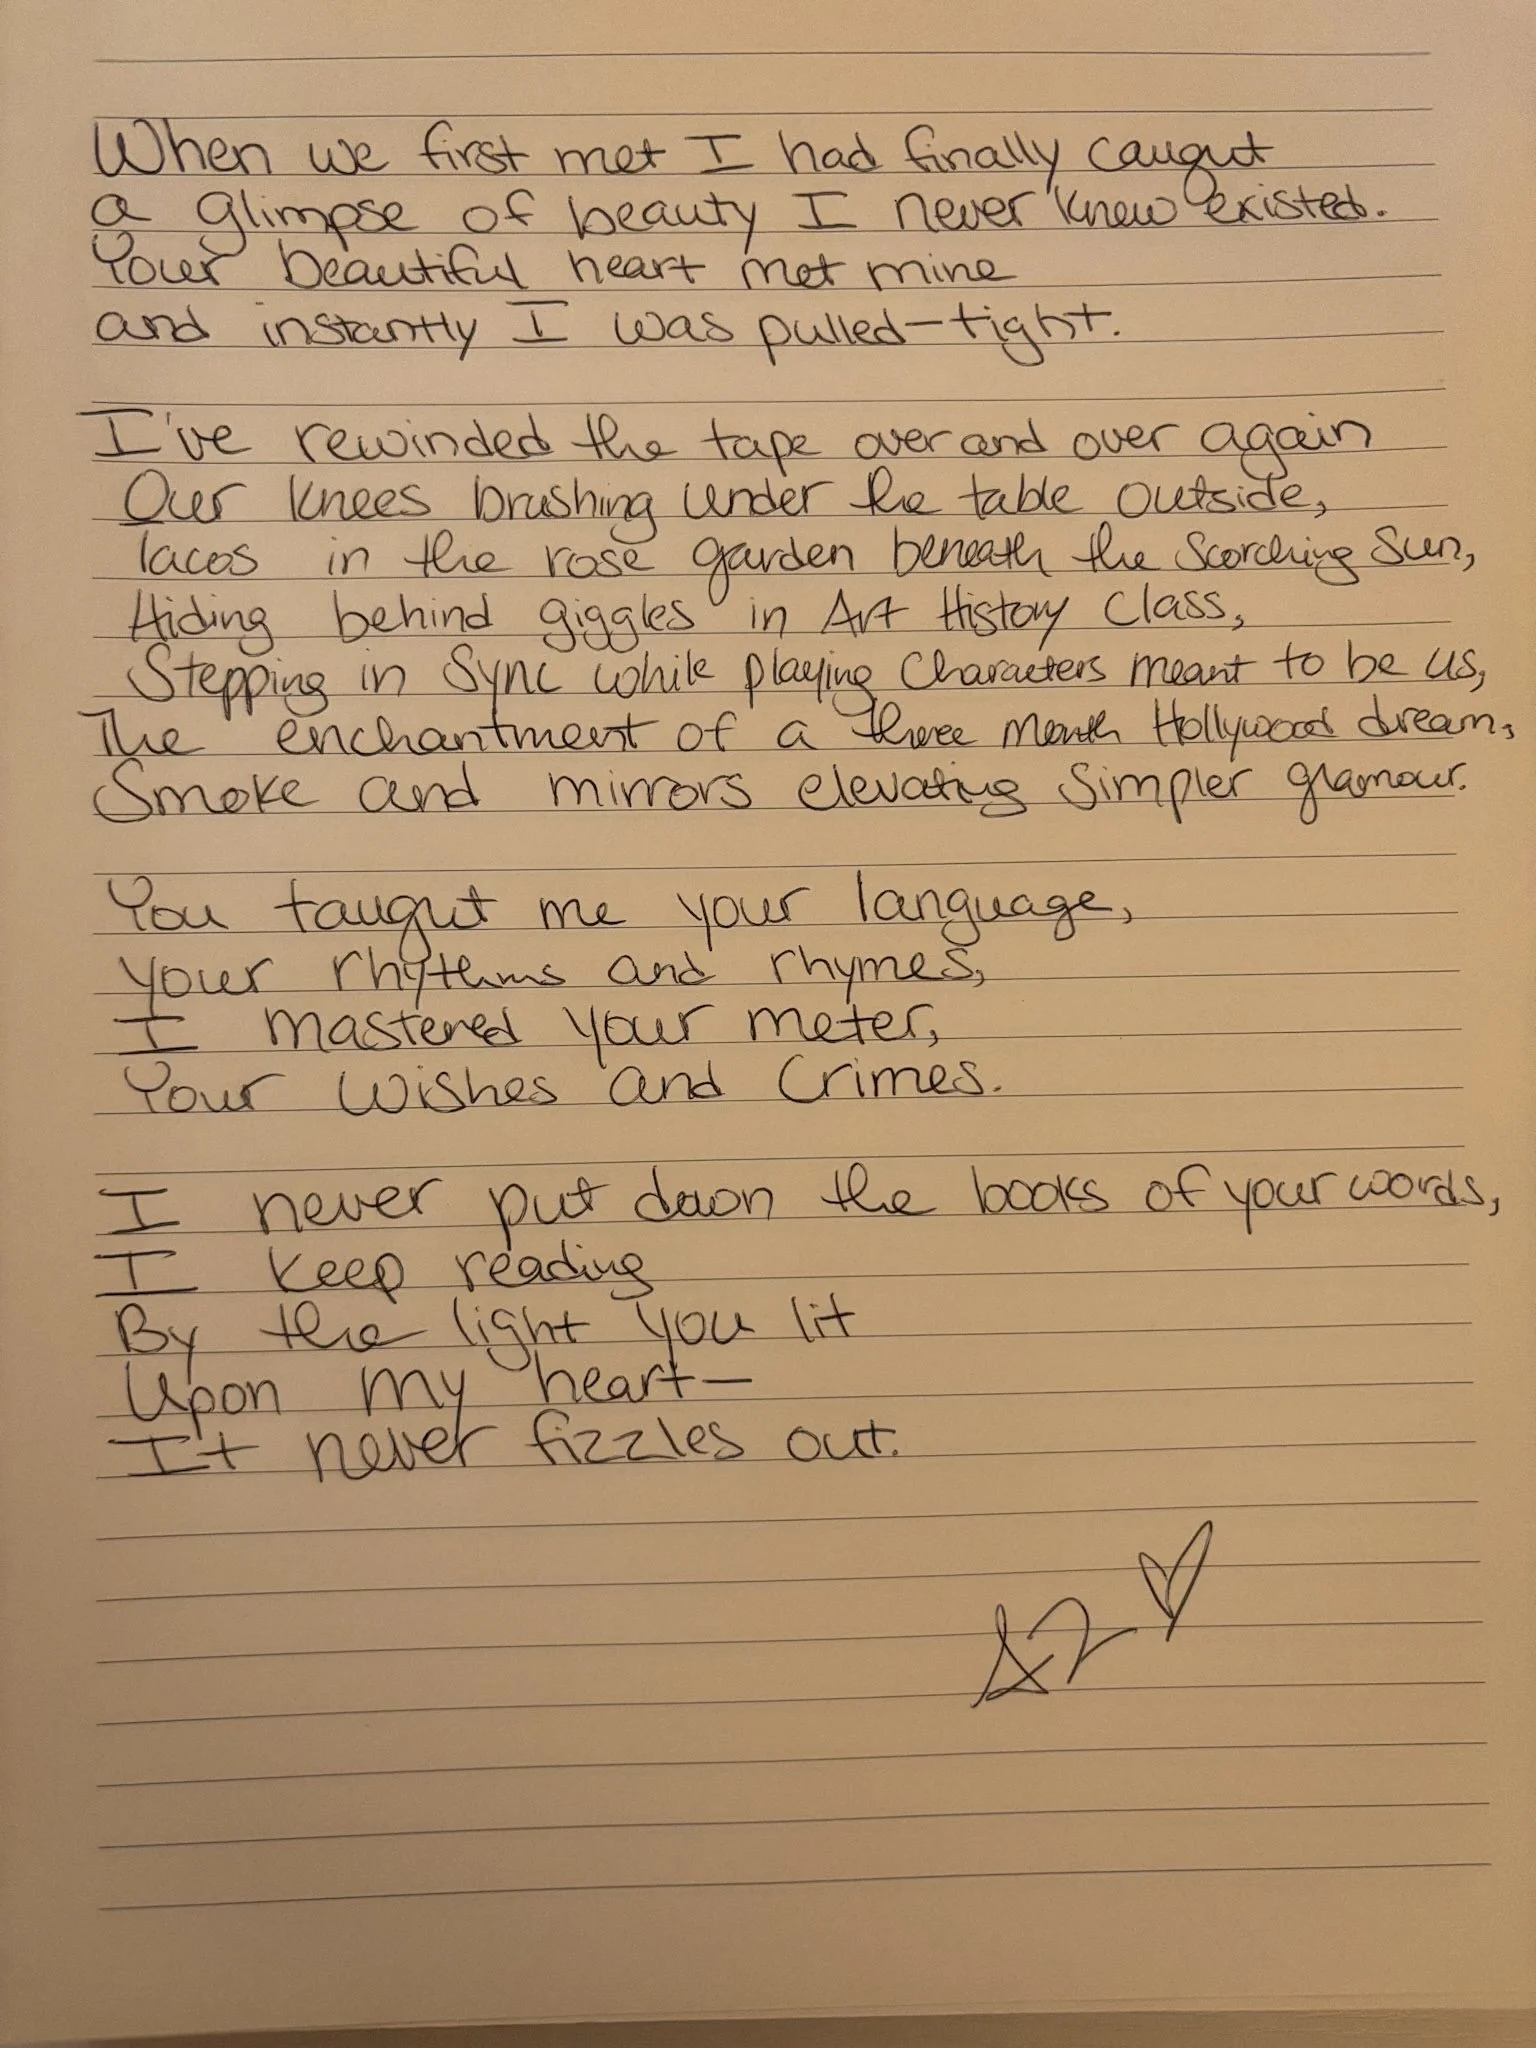 When we first met I had finally caught
a glimpse of beauty I never knew existed.
Your beautiful heart met mine
and instantly I was pulled-tight.
I've rewinded the tape over and over again
Our knees brushing under the table outside,
Tacos in the rose garden beneath the Scorching Sun,
Hiding behind giggles in Art History Class,
Stepping in Sync while playing Characters meant to be us,
The enchantment of a three month Hollywood dream,
Smoke and mirrors elevating Simpler glamour.
You taught me your language,
your rhythms and rhymes,
I mastered your meter,
Your Wishes and Crimes.
I never put down the books of your words,
I keep reading
By the light you lit
Upon my heart—
It never fizzles out.